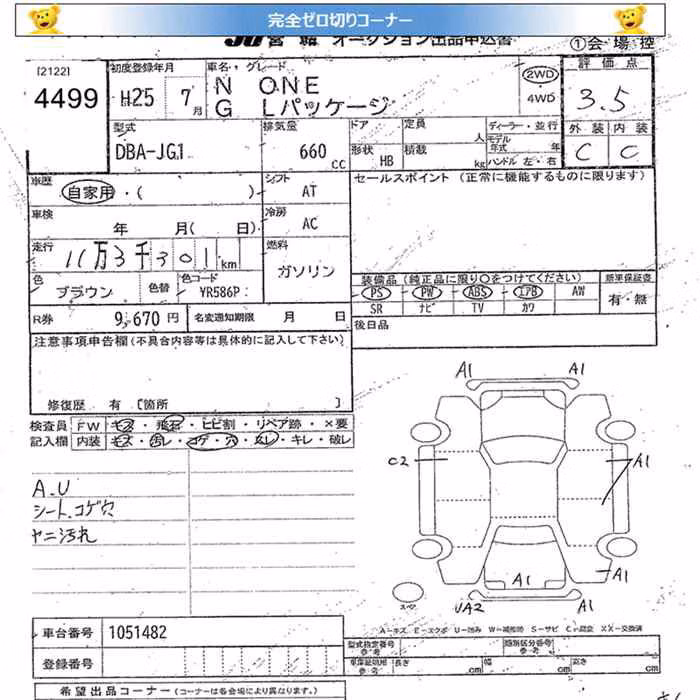 完全ゼロ切りコーナー
JU宮城 オークション出品申込書
①会場控
[2122]
4499
初度登録年月
H25 7月
車名・グレード
N ONE
G Lパッケージ
2WD
4WD
評価点
3.5
外装 内装
C C
型式
DBA-JG1
排気量
660 CC
ドア
形状 HB
定員 人
積載 kg
ディーラー・並行
モデル年式 年
ハンドル 左・右
車歴
自家用・( )
シフト
AT
セールスポイント (正常に機能するものに限ります)
車検
年 月( 日)
冷房
AC
走行
11万3千301km
燃料
ガソリン
色
ブラウン
色替
色コード
YR586P
装備品 (純正品に限り○をつけてください)
PS PW ABS エアB AW
SR ナビ TV カワ
新車保証書
有・無
R券 9,670円
名変通知期限 月 日
後日品
注意事項申告欄(不具合内容等は具体的に記入して下さい)
修復歴 有 [箇所 ]
検査員記入欄
FW キズ・飛石・ヒビ割・リペア跡・×要
内装 キズ・汚レ・コゲ・穴・ヌレ・キレ・破レ
A.U
シート.コゲ穴
ヤニ汚れ
A1 A1
C2 A1
A1
A1
A2 A1
スペア
A-キズ E-エクボ U-凹み W-補修跡 S-サビ C-腐食 XX-交換済
車台番号 1051482
登録番号
型式指定番号 参考
類別区分番号 参考
車庫証明用 参考
長さ cm 幅 cm 高さ cm
希望出品コーナー (コーナーは各会場により異なります。)